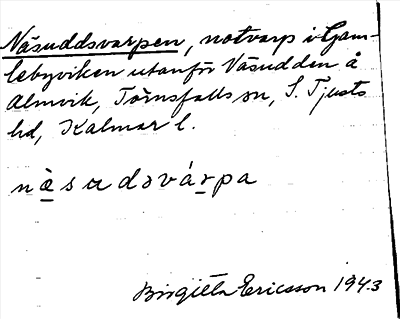 Näsuddsvarpen, notvarp i Gam-
lebyviken utanför Näsudden å
Almvik, Törnsfalls sn, S. Tjusts
hd, Kalmar l.
nä̀sudəvárpa
Birgitta Ericsson 1943